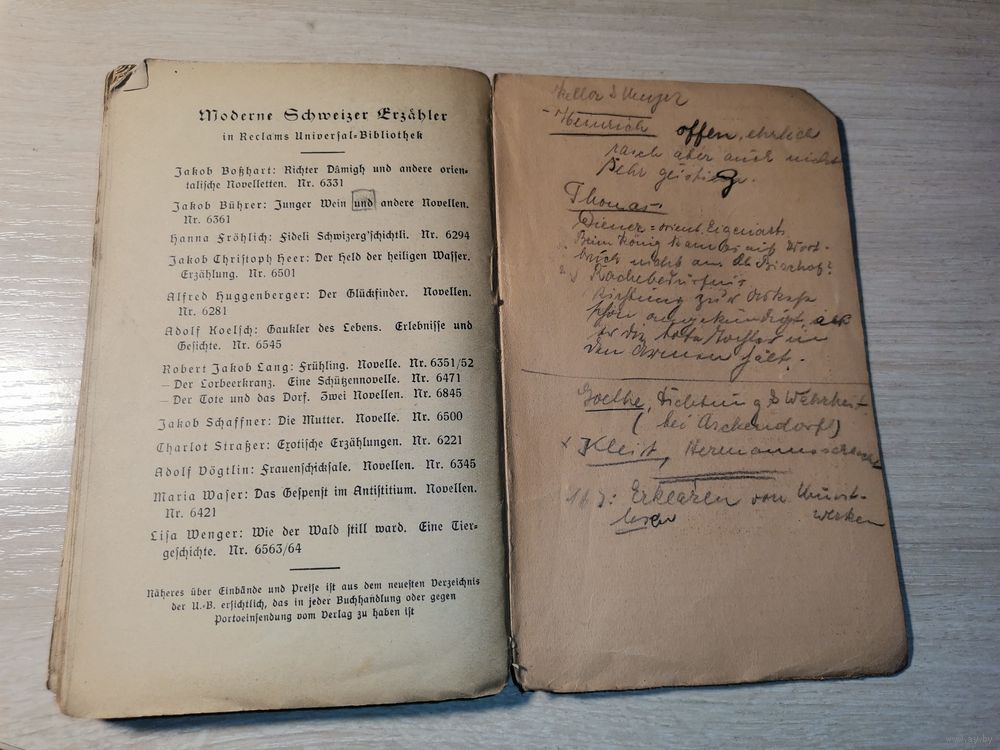 Moderne Schweizer Erzähler
in Reclams Universal-Bibliothek
Jakob Boßhart: Richter Dâmigh und andere orien-
talische Novelletten. Nr. 6331
Jakob Bührer: Junger Wein und andere Novellen.
Nr. 6361
Hanna Fröhlich: Fideli Schwizerg'schichtli. Nr. 6294
Jakob Christoph Heer: Der Held der heiligen Wasser.
Erzählung. Nr. 6501
Alfred Huggenberger: Der Glückfinder. Novellen.
Nr. 6281
Adolf Koelsch: Gaukler des Lebens. Erlebnisse und
Gesichte. Nr. 6545
Robert Jakob Lang: Frühling. Novelle. Nr. 6351/52
— Der Lorbeerkranz. Eine Schützennovelle. Nr. 6471
— Der Tote und das Dorf. Zwei Novellen. Nr. 6845
Jakob Schaffner: Die Mutter. Novelle. Nr. 6500
Charlot Straßer: Exotische Erzählungen. Nr. 6221
Adolf Vögtlin: Frauenschicksale. Novellen. Nr. 6345
Maria Waser: Das Gespenst im Antistitium. Novellen.
Nr. 6421
Lisa Wenger: Wie der Wald still ward. Eine Tier-
geschichte. Nr. 6563/64
Näheres über Einbände und Preise ist aus dem neuesten Verzeichnis
der U.-B. ersichtlich, das in jeder Buchhandlung oder gegen
Portoeinsendung vom Verlag zu haben ist
Heinrich offen, ehrlich
rasch aber auch nicht
sehr geistig.
Thomas
Diener = orient. Eigenart
Beim König
nicht
Rachebedürfnis
schon angekündigt, als
er die tote Tochter in
den Armen hält.
Goethe, Dichtung & Wahrheit
(bei Aschendorff)
x Kleist, Hermannsschlacht
Erklären von Kunst-
werken
lesen